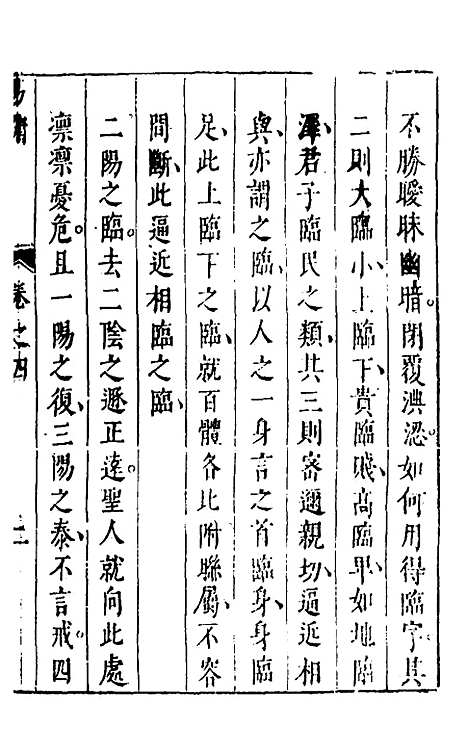 不勝曖昧幽暗閉覆淟涊如何用得臨字其
二則大臨小上臨下貴臨賤高臨卑如地臨
澤君子臨民之類其三則密邇親切逼近相
與亦謂之臨以人之一身言之首臨身身臨
足此上臨下之臨就百體各比附聯屬不容
間斷此逼近相臨之臨
二陽之臨去二陰之遯正遠聖人就向此處
凜凜憂危且一陽之復三陽之泰不言戒四
卷之四